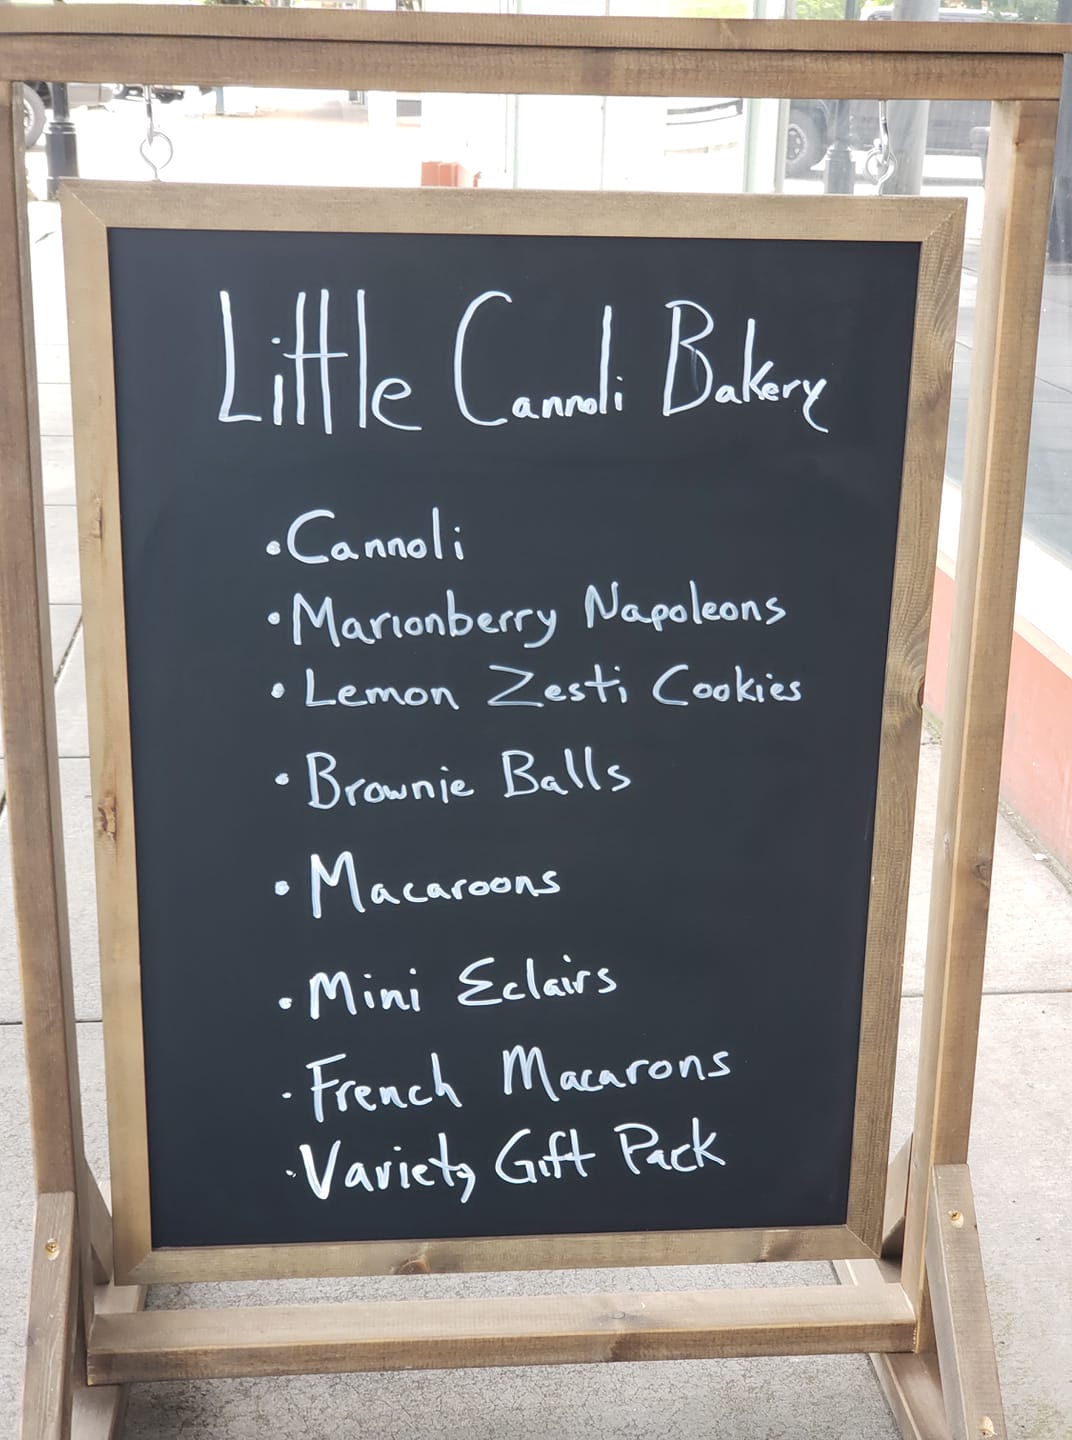 Little Cannoli Bakery
• Cannoli
• Marionberry Napoleons
• Lemon Zesti Cookies
• Brownie Balls
• Macaroons
• Mini Eclairs
• French Macarons
• Variety Gift Pack